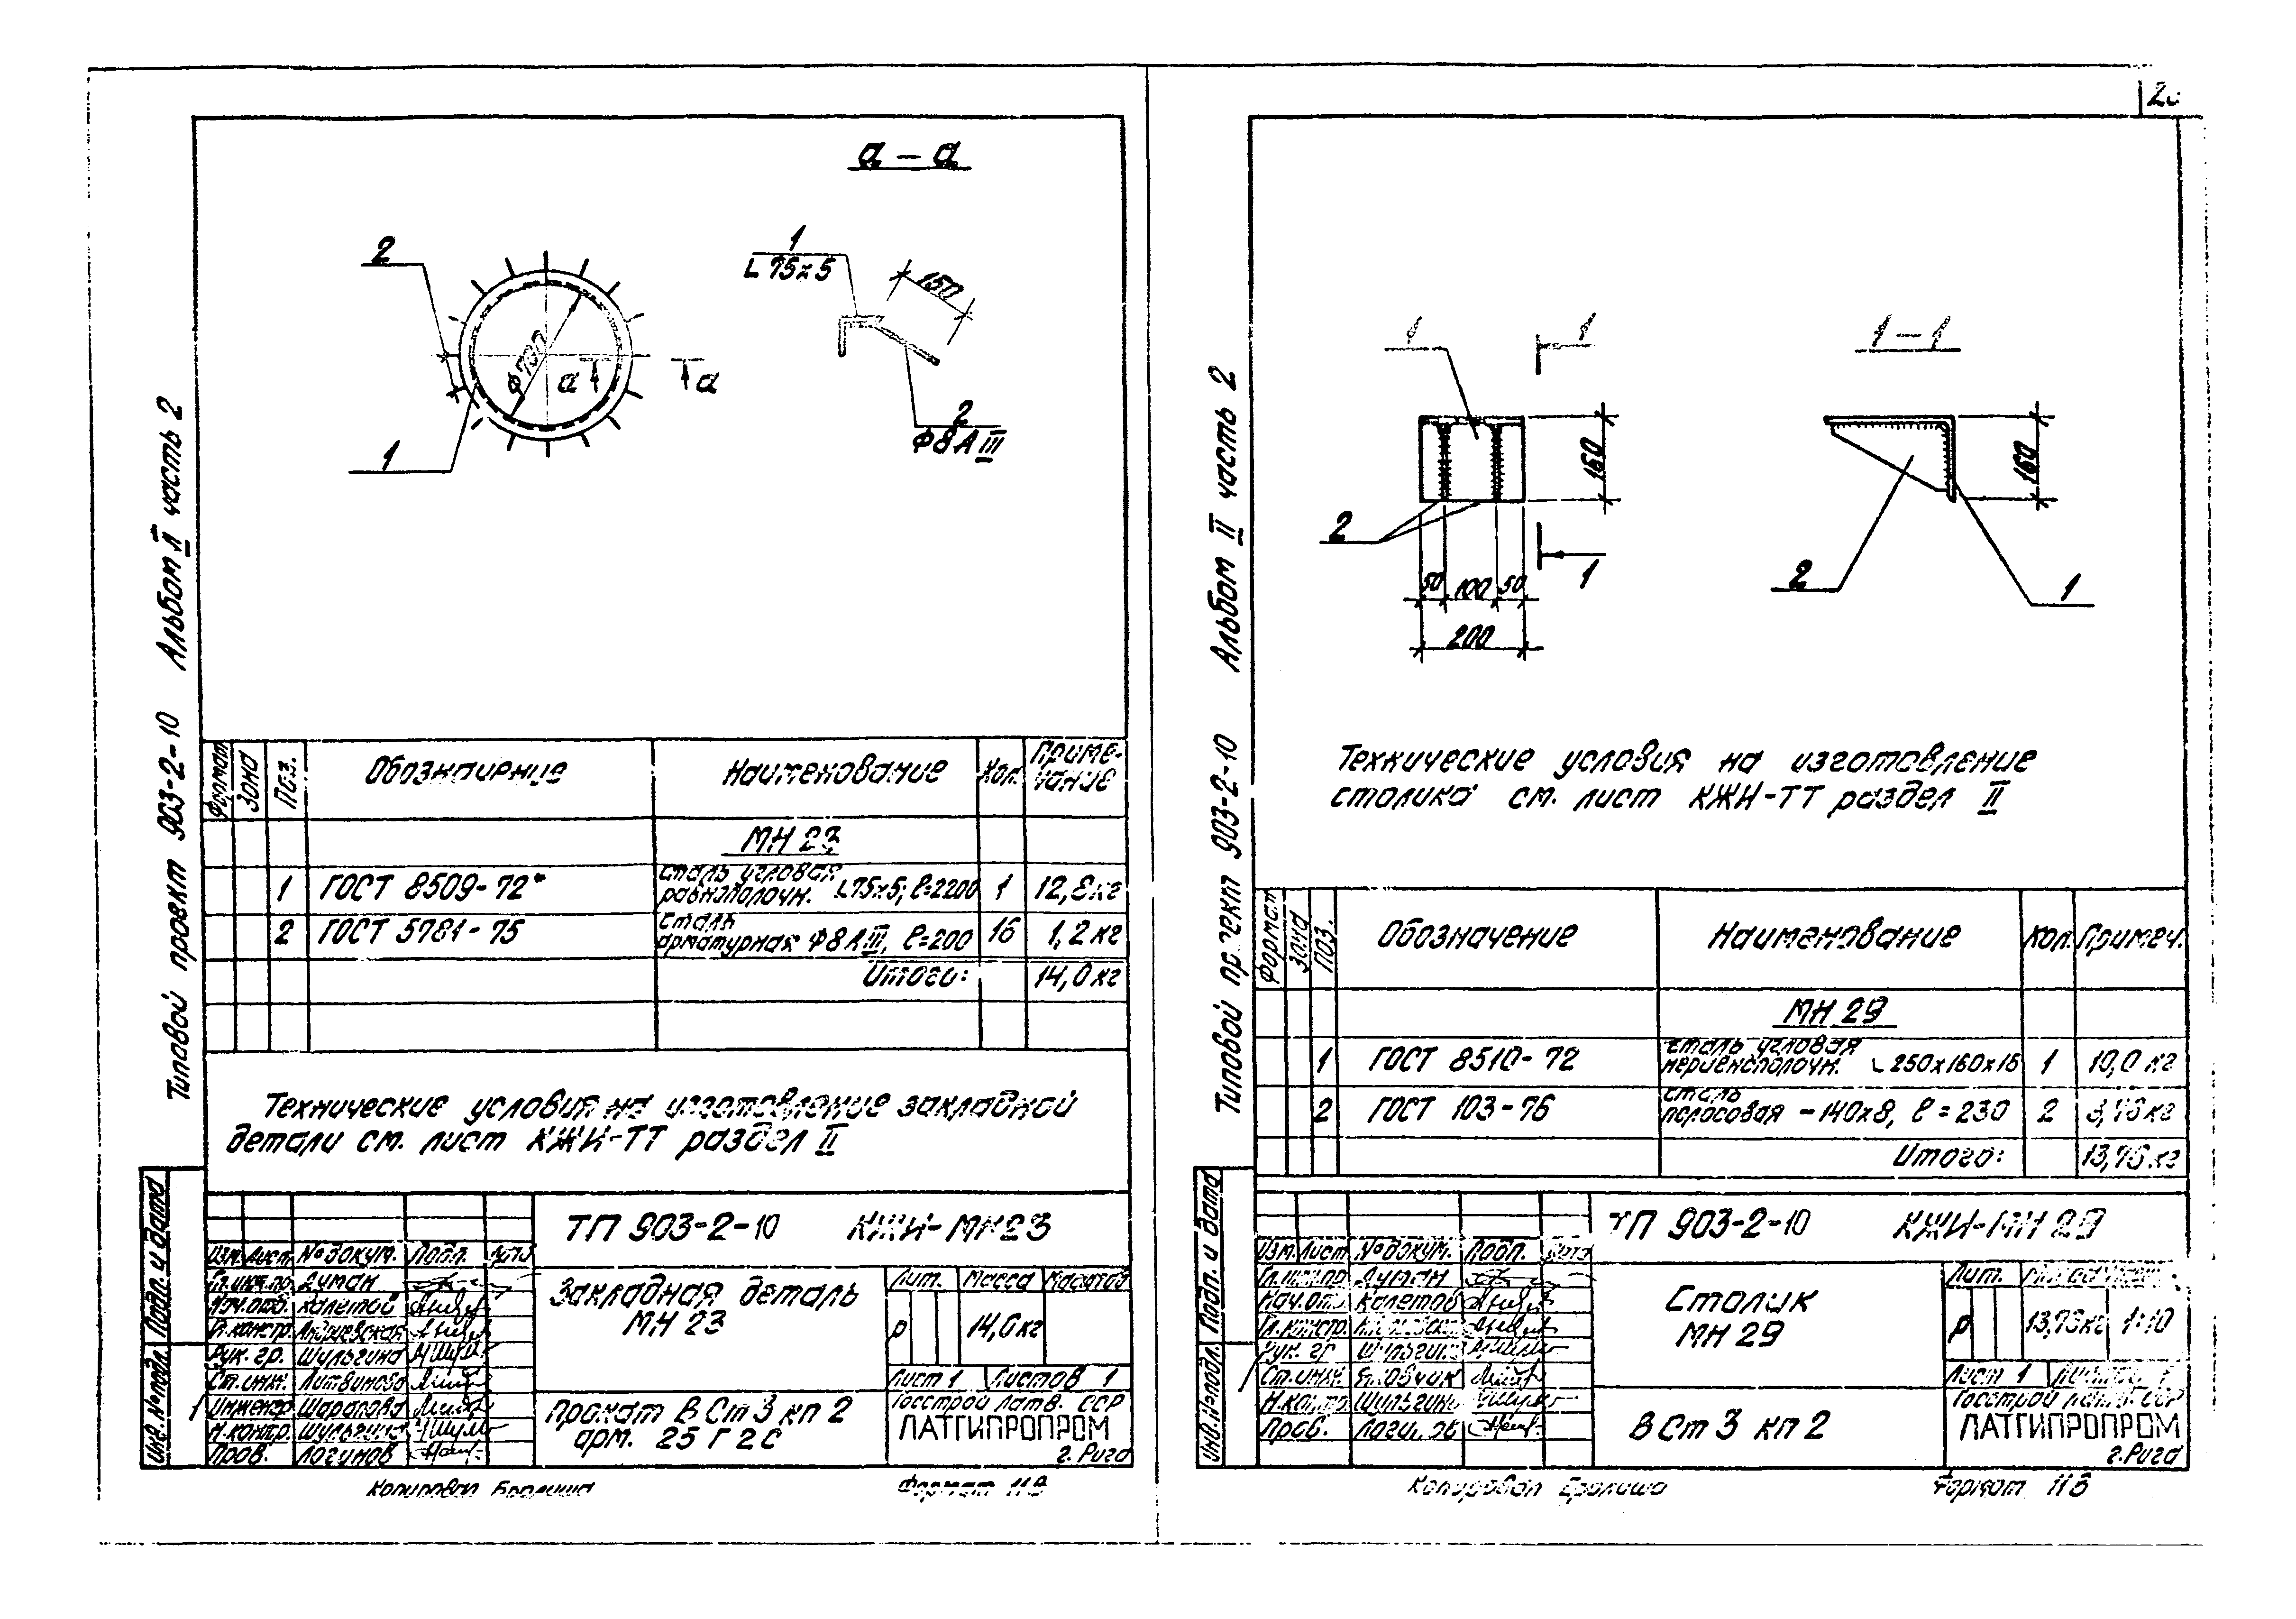 а – а
2
1
L 75х5
150
ф700
а
а
2
ф8АIII
1
Альбом II часть 2
Типовой проект 903-2-10
Формат
Зона
Поз.
Обозначение
Наименование
Кол.
Приме-
чание
МН 23
1 ГОСТ 8509-72* сталь угловая равнополочн. L75х5; ℓ=2200 1 12,8кг
2 ГОСТ 5781-75 сталь арматурная ф8АIII, ℓ=200 16 1,2кг
Итого: 14,0кг
Технические условия на изготовление закладной
детали см. лист КЖИ-ТТ раздел II
ТП 903-2-10 КЖИ-МН23
Изм. Лист №докум. Подп. Дата
Гл.инж.пр. Думан
Нач.отд. Калетой
Гл.констр. Андриевская
Рук. гр. Шульгина
Ст.инж. Литвинова
Инженер Шарапова
Н.контр. Шульгина
Пров. Логинов
Закладная деталь
МН 23
Лит. Масса Масштаб
Р 14,0кг
Лист 1 Листов 1
Прокат ВСт3 кп2
арм. 25Г2С
Госстрой Латв. ССР
ЛАТГИПРОПРОМ
г. Рига
Подп. и дата
Инв.№подл.
Копировал
Формат 11В
1
1
1–1
160
160
2
50 100 50
200
1
2
1
Альбом II часть 2
Типовой проект 903-2-10
Технические условия на изготовление
столика см. лист КЖИ-ТТ раздел II
Формат
Зона
Поз.
Обозначение
Наименование
Кол.
Примеч.
МН 29
1 ГОСТ 8510-72 сталь угловая неравнополочн. L 250х160х16 1 10,0 кг
2 ГОСТ 103-76 сталь полосовая –140х8, ℓ=230 2 3,76кг
Итого: 13,76кг
ТП 903-2-10 КЖИ-МН 29
Изм. Лист №докум. Подп. Дата
Гл.инж.пр. Думан
Нач.отд. Калетов
Гл.констр.
Рук. гр. Шульгина
Ст.инж. Яковчик
Н.контр. Шульгина
Пров.
Столик
МН 29
Лит. Масса
Р 13,76кг 1:10
Лист 1 Листов 1
ВСт3 кп2
Госстрой Латв. ССР
ЛАТГИПРОПРОМ
г. Рига
Подп. и дата
Инв.№подл.
Копировал
Формат 11В